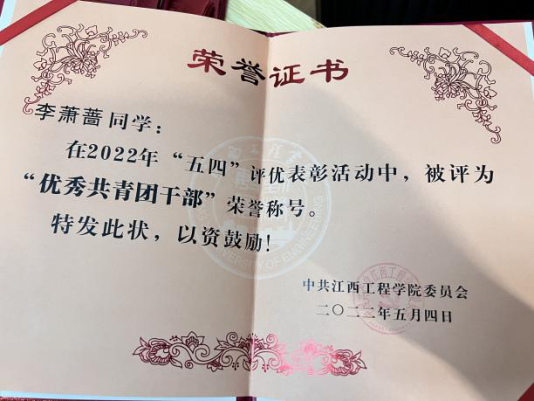 荣誉证书
李萧蔷同学：
在2022年“五四”评优表彰活动中，被评为
“优秀共青团干部”荣誉称号。
特发此状，以资鼓励！
中共江西工程学院委员会
二〇二二年五月四日